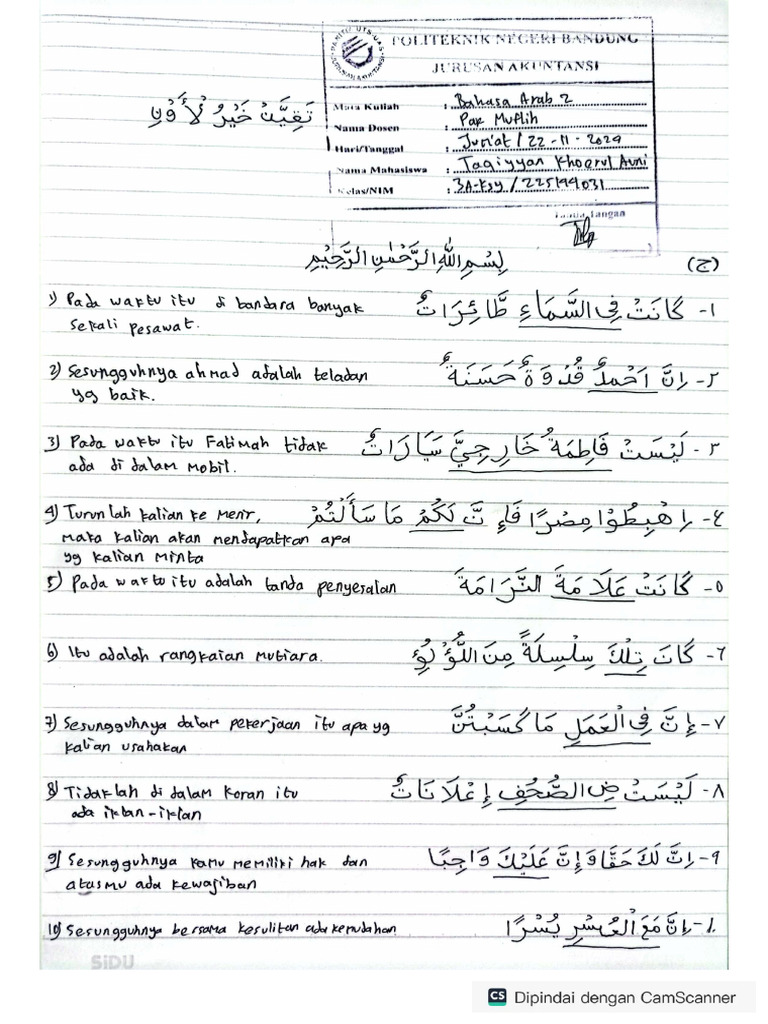 POLITEKNIK NEGERI BANDUNG
JURUSAN AKUNTANSI
Mata Kuliah : Bahasa Arab 2
Nama Dosen : Pak Muflih
Hari/Tanggal : Jum'at / 22-11-2024
Nama Mahasiswa : Taqiyyan Khoerul Auni
Kelas/NIM : 3A-Ksy / 225194031
Tanda Tangan
تَقِيَّنْ خَيْرُ لْأَوْنِ
بِسْمِ اللهِ الرَّحْمٰنِ الرَّحِيْمِ
(ج)
1) Pada waktu itu di bandara banyak
sekali pesawat.
١- كَانَتْ فِى السَّمَاءِ طَّائِرَاتٌ
2) Sesungguhnya ahmad adalah teladan
yg baik.
٢- اِنَّ اَحْمدٌ قُدْوَةٌ حَسَنَةٌ
3) Pada waktu itu Fatimah tidak
ada di dalam mobil.
٣- لَيْسَتْ فَاطِمَةُ خَارِجِيَّ سَيَارَاتٌ
4) Turunlah kalian ke Mesir,
maka kalian akan mendapatkan apa
yg kalian minta
٤- اِهْبِطُوْا مِصْرًا فَإِنَّ لَكُمْ مَا سَأَلْتُمْ
5) Pada waktu itu adalah tanda penyesalan
٥- كَانَتْ عَلَامَةَ النَّرَامَةَ
6) Itu adalah rangkaian mutiara.
٦- كَانَ تِلْكَ سِلْسِلَةً مِنَ اللُّؤْلُؤِ
7) Sesungguhnya dalam pekerjaan itu apa yg
kalian usahakan
٧- إِنَّ فِى الْعَمَلِ مَا كَسَبْتُنَّ
8) Tidaklah di dalam koran itu
ada iklan-iklan
٨- لَيْسَتْ ضِ الصُّحُفِ إِعْلَانَاتٌ
9) Sesungguhnya kamu memiliki hak dan
atasmu ada kewajiban
٩- اِنَّ لَكَ حَقًّا وَإِنَّ عَلَيْكَ وَاجِبًا
10) Sesungguhnya bersama kesulitan ada kemudahan.
١٠- اِنَّ مَعَ الْعُسْرِ يُسْرًا
SiDU
CS Dipindai dengan CamScanner